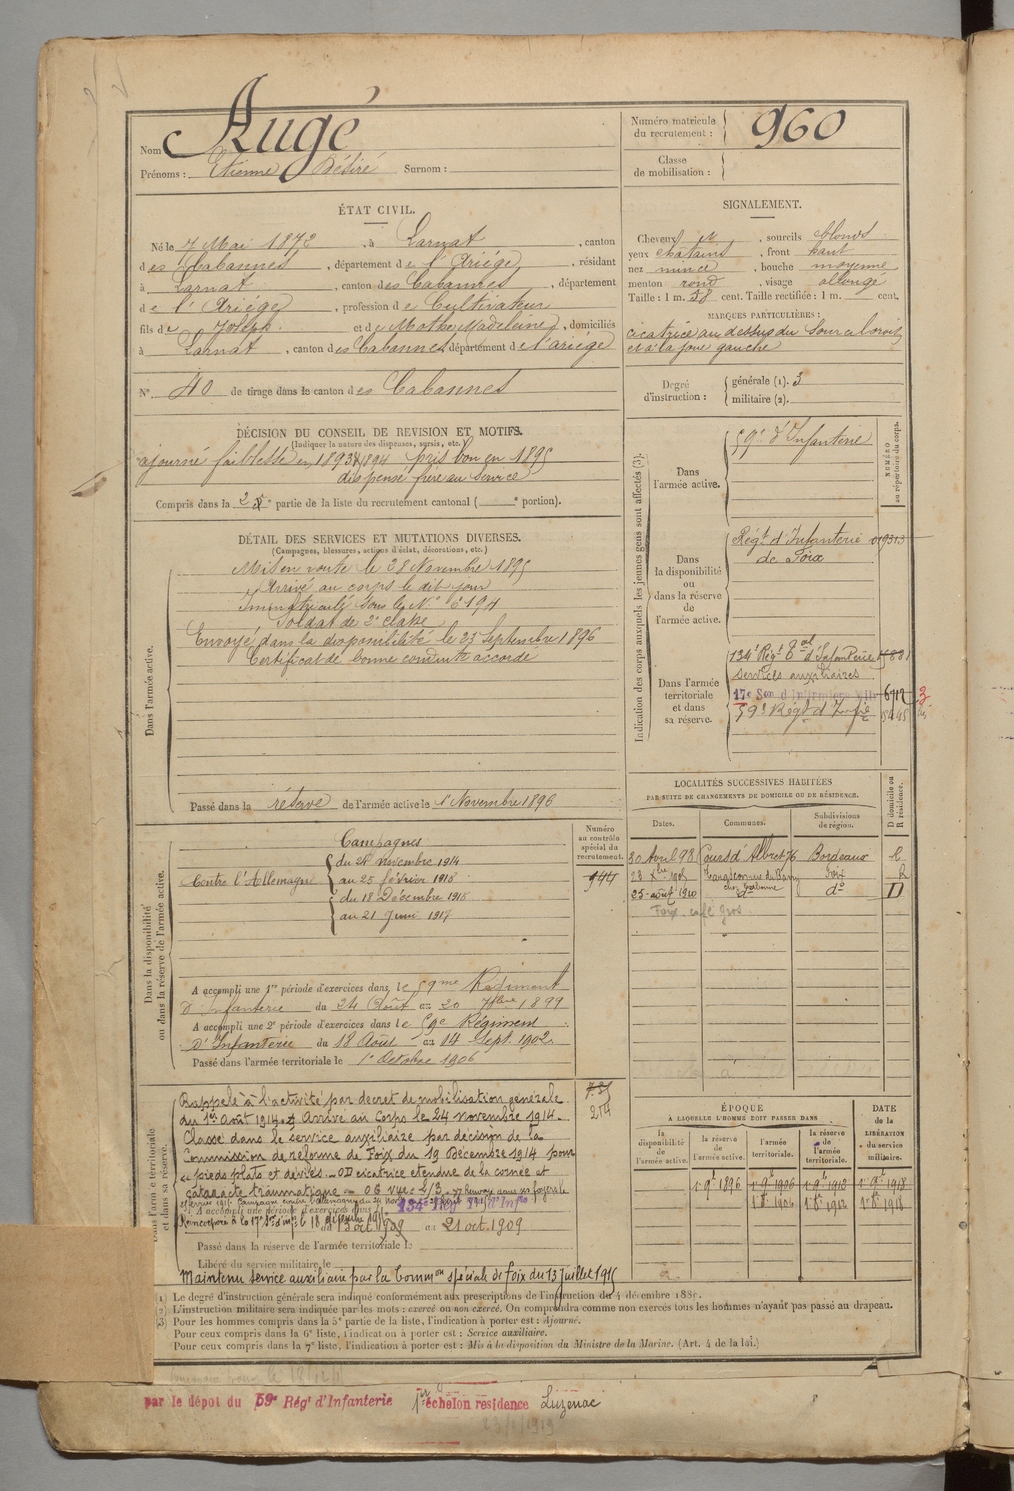 Nom Augé
Prénoms : Etienne Désiré Surnom :
Numéro matricule du recrutement : 960
Classe de mobilisation :
ÉTAT CIVIL.
Né le 7 Mai 1872, à Larnat, canton
des Cabannes, département de l'Ariége, résidant
à Larnat, canton des Cabannes, département
de l'Ariége, profession de Cultivateur
fils de Joseph et de Mothe Madeleine, domiciliés
à Larnat, canton des Cabannes, département de l'ariége
N° 40 de tirage dans le canton des Cabannes
SIGNALEMENT.
Cheveux et, sourcils blonds
yeux chatains, front haut
nez mince, bouche moyenne
menton rond, visage allongé
Taille : 1 m. 58 cent. Taille rectifiée : 1 m. cent.
MARQUES PARTICULIÈRES :
cicatrice au dessus du
et à la joue gauche
Degré d'instruction : générale (1). 3
militaire (2).
DÉCISION DU CONSEIL DE REVISION ET MOTIFS.
(Indiquer la nature des dispenses, sursis, etc.)
ajourné faiblesse en 1893 1894 pris bon en 1895
dispensé frère au service
Compris dans la 2 e partie de la liste du recrutement cantonal ( e portion).
DÉTAIL DES SERVICES ET MUTATIONS DIVERSES.
(Campagnes, blessures, actions d'éclat, décorations, etc.)
Dans l'armée active.
Mis en route le 28 Novembre 1895
Arrivé au corps le dit jour
Immatriculé sous le N° 6194
Soldat de 2e classe
Envoyé dans la disponibilité le 25 Septembre 1896
Certificat de bonne conduite accordé
Passé dans la réserve de l'armée active le 1 Novembre 1896
Indication des corps auxquels les jeunes gens sont affectés (3).
NUMÉRO au répertoire du corps.
Dans l'armée active.
59e d'Infanterie
Dans la disponibilité ou dans la réserve de l'armée active.
Régt d'Infanterie
de Foix
Dans l'armée territoriale et dans sa réserve.
134e Régt Tal d'Infanterie
services auxiliaires
17e Son d'Infirmiers Mil
6712
59e Régt d'Infie
LOCALITÉS SUCCESSIVES HABITÉES
PAR SUITE DE CHANGEMENTS DE DOMICILE OU DE RÉSIDENCE.
Dates. Communes. Subdivisions de région. D domicile ou R résidence.
30 Avril 98 Cours d'Albret 76 Bordeaux R
23 Xbre 1905 Foix R
25 août 1910 do do D
Foix café Gros
Dans la disponibilité ou dans la réserve de l'armée active.
Numéro au contrôle spécial du recrutement.
944
Campagnes
Contre l'Allemagne
du 24 novembre 1914
au 25 février 1915
du 18 Décembre 1915
au 21 Juin 1917
A accompli une 1re période d'exercices dans le 59me Régiment
d'Infanterie du 24 Août au 20 7bre 1899
A accompli une 2e période d'exercices dans le 59e Régiment
d'Infanterie du 18 Août au 14 Sept. 1902
Passé dans l'armée territoriale le 1er Octobre 1906
Dans l'armée territoriale et dans sa réserve.
Rappelé à l'activité par décret de mobilisation générale
du 1er août 1914. Arrivé au Corps le 24 novembre 1914.
Classé dans le service auxiliaire par décision de la
Commission de réforme de Foix du 19 Décembre 1914 pour
« pieds plats et déviés. OD cicatrice étendue de la cornée et
cataracte traumatique - OG vue = 2/3
A accompli une période d'exercices dans 134e Régt Tal d'Info
du 13 oct. 1909 au 21 oct. 1909
Passé dans la réserve de l'armée territoriale le
Libéré du service militaire le
Maintenu service auxiliaire par la Common spéciale de Foix du 13 juillet 1915
214
ÉPOQUE
À LAQUELLE L'HOMME DOIT PASSER DANS
DATE de la LIBÉRATION du service militaire.
la disponibilité de l'armée active. la réserve de l'armée active. l'armée territoriale. la réserve de l'armée territoriale.
1 9e 1896 1 9e 1906 1 9e 1912 1 9e 1918
1 8e 1906 1 8e 1912 1 8e 1918
(1) Le degré d'instruction générale sera indiqué conformément aux prescriptions de l'instruction du 4 décembre 1889.
(2) L'instruction militaire sera indiquée par les mots : exercé ou non exercé. On comprendra comme non exercés tous les hommes n'ayant pas passé au drapeau.
(3) Pour les hommes compris dans la 5e partie de la liste, l'indication à porter est : Ajourné.
Pour ceux compris dans la 6e liste, l'indication à porter est : Service auxiliaire.
Pour ceux compris dans la 7e liste, l'indication à porter est : Mis à la disposition du Ministre de la Marine. (Art. 4 de la loi.)
par le dépôt du 59e Régt d'Infanterie 1er échelon résidence Luzenac